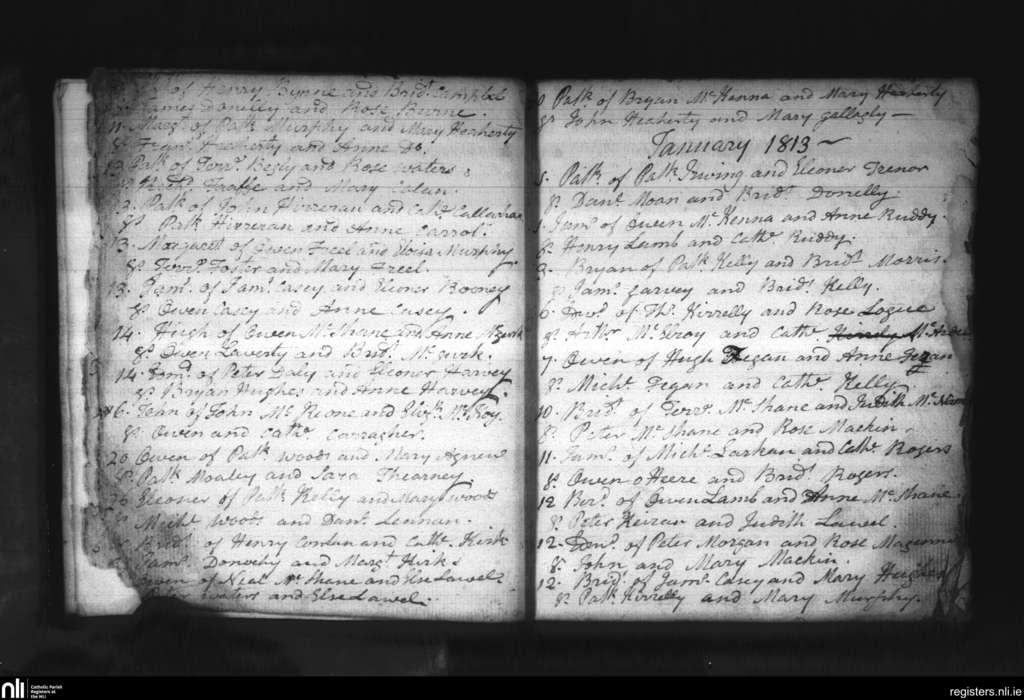 of Henry Byrne and Brid.t Campbel
James Donelly and Rose Burne.
11. Marg.t of Pat.k Murphy and Mary Heaherty
Heaherty and Anne do.
Pat.k of Ter.e and Rose waters
and Mary
Pat.k of John Hirreran and Cath.e Callaghan
Sp.s Pat.k Hirreran and Anne Carrol.
13. Margaret of Owen Freel and Murphy
Sp.s Foster and Mary Freel.
13. Jam.s of Jam.s Casey and Eleoner Rooney
Sp.s Owen Casey and Anne Casey.
14. Hugh of Owen McShane and Anne McGurk
Sp.s Owen Laverty and Brid.t McGurk.
14. of Peter Daly and Eleoner Harvey
Sp.s Bryan Hughes and Anne Harvey.
16. of John McKeone and McRoy.
Sp.s Owen and Cath.e Carragher.
20 Owen of Pat.k woods and Mary Agnew
Sp.s Pat.k Moaley and Sara
Eleoner of Pat.k Kelly and Mary woods
Mich.l Woods and Dan.l Lennan.
Brid.t of Henry Conlan and Cath.e Kirk
Jam.s and Marg.t Kirks
Owen of Neal McShane and Else Lawel
Peter waters and Else Lawel.
Pat.k of Bryan McKenna and Mary Heaherty
Sp.s John Heaherty and Mary Gallogly —
January 1813 ~
5. Pat.k of Pat.k Irwing and Eleoner Trenor
Sp.s Dan.l Moan and Brid.t Donelly.
Jam.s of Owen McKenna and Anne Ruddy.
Sp.s Henry Lamb and Cath.e Ruddy.
Bryan of Pat.k Kelly and Brid.t Morris.
Sp.s Jam.s Garvey and Brid.t Kelly.
6. of Th.s Kirrelly and Rose Logue
Sp.s Arth.r McElroy and Cath.e
7. Owen of Hugh Fegan and Anne Fegan
Sp.s Mich.l Fegan and Cath.e Kelly.
10. Brid.t of Terr.e McShane and Judith
Sp.s Peter McShane and Rose Mackin.
11. Jam.s of Mich.l Larkan and Cath.e Rogers
Sp.s Owen oHeere and Brid.t Rogers.
12 Ber.d of Owen Lamb and Anne McShane.
Sp.s Peter Keiran and Judith Lawel.
12. of Peter Morgan and Rose Magennis
Sp.s John and Mary Mackin.
12. Brid.t of Jam.s Casey and Mary Hughes
Sp.s Pat.k Kirrelly and Mary Murphy.
nli
Catholic Parish
Registers at
the NLI
registers.nli.ie